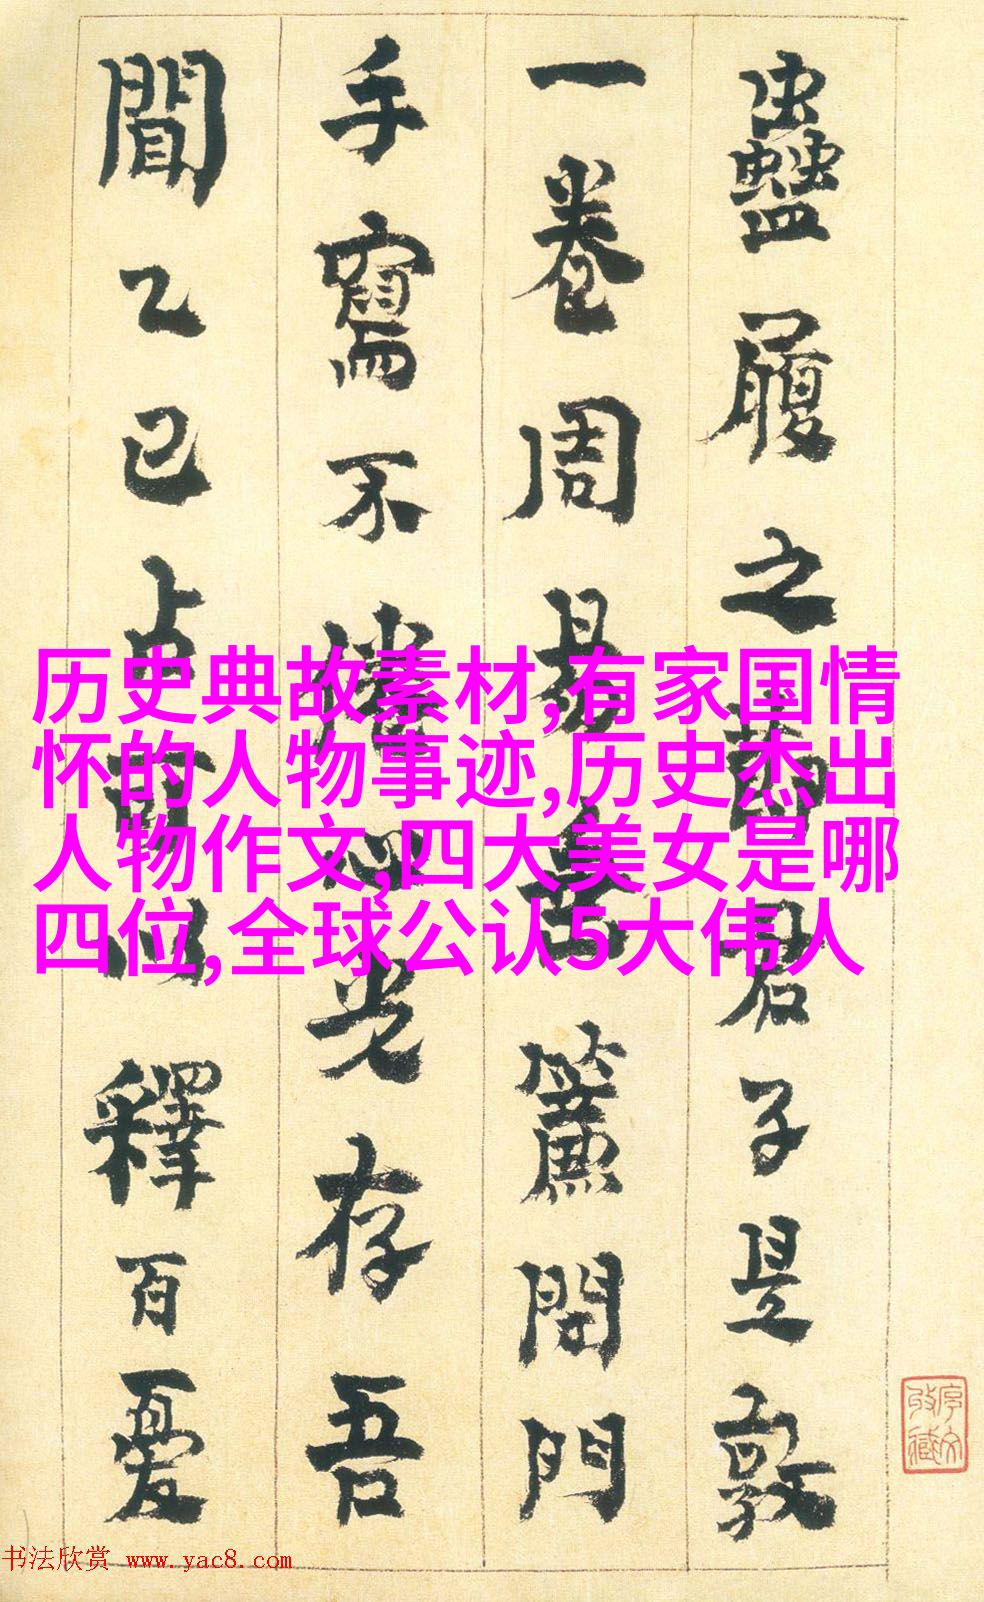 蠱履之君子是敦
一卷周易垂簾閉門
手寫不心光存吾
聞乙巳占可以釋百憂
历史典故素材,有家国情
怀的人物事迹,历史杰出
人物作文,四大美女是哪
四位,全球公认5大伟人
书法欣赏 www.yac8.com